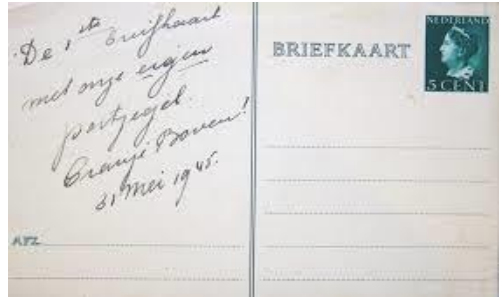 De 1ste Briefkaart
met onze eigen
postzegel.
Oranje Boven!
31 Mei 1945.
AFZ.
BRIEFKAART
NEDERLAND
5 CENT